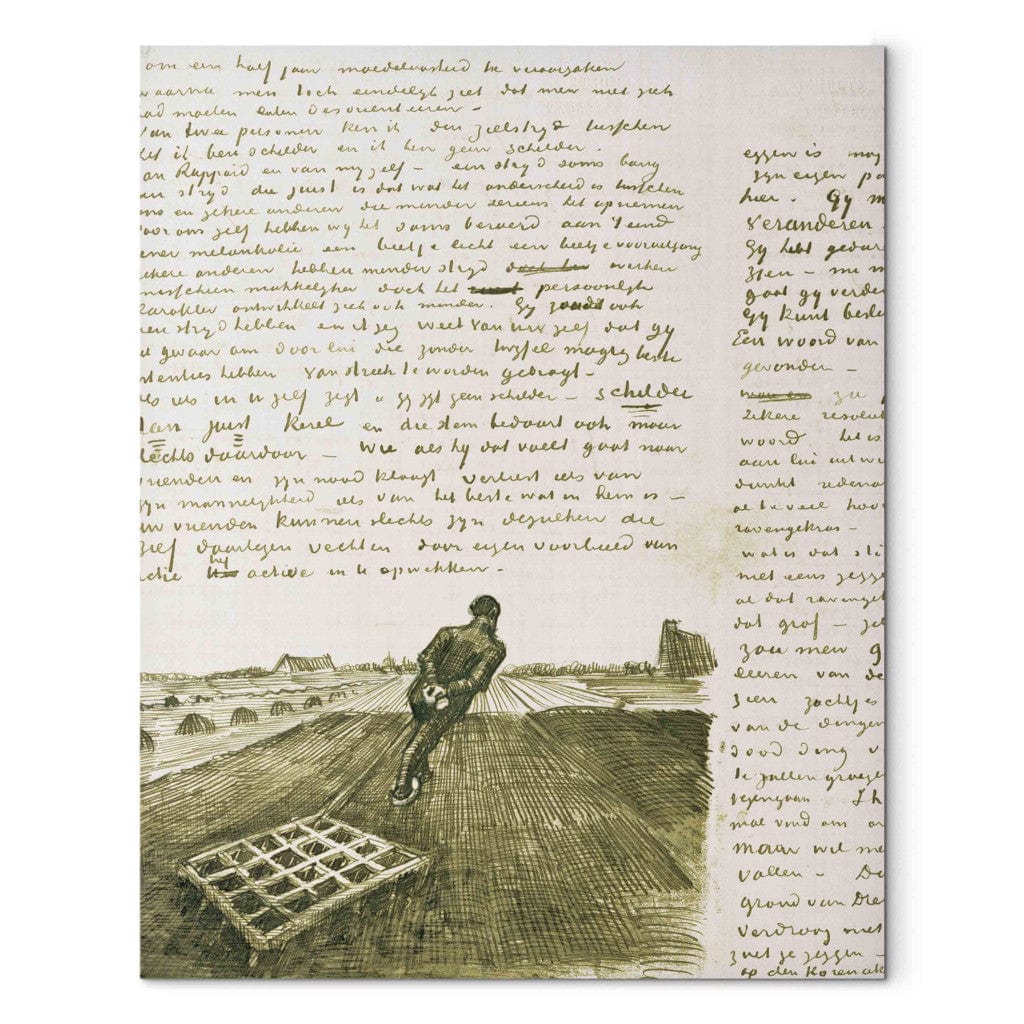 om een half jaar moedeloosheid te veroorzaken
waarna men toch eindelijk ziet dat men niet zich
had moeten laten desorienteeren –
Van twee personen ken ik den zielstrijd tusschen
het ik ben schilder en ik ben geen schilder.
van Rappard en van mij zelf – een strijd soms bang
een strijd die juist is dat wat het onderscheid is tusschen
ons en zekere anderen die minder serieus het opnemen
voor ons zelf hebben wij het soms beroerd aan 't eind
eener melankolie een beetje licht een beetje vooruitgang
zekere anderen hebben minder strijd werken
misschien makkelijker doch het persoonlijk
karakter ontwikkelt zich ook minder. Gij zoudt ook
dien strijd hebben en ik zeg weet van uw zelf dat gij
gevaar om door lui die zonder twijfel magnes beste
intenties hebben van streek te worden gebragt –
als iets in U zelf zegt „gij zijt geen schilder – schilder
dan juist kerel en die stem bedaart ook maar
slechts daardoor – wie als hij dat voelt gaat naar
vrienden en zijn nood klaagt verliest iets van
zijn mannelijkheid iets van het beste wat in hem is –
uw vrienden kunnen slechts zijn dezulken die
zelf daartegen vechten door eigen voorbeeld van
actie het active in U opwekken –
eggen is mog
zijn eigen po
hier. Gij m
veranderen
Gij hebt gedur
zien – me m
gaat gij verder
Gij kunt beslu
Een woord van
gevonden –
zu
zekere resolut
woord het is
aan lui uit we
dunkt redena
al te veel hoo
ravengekras –
wat is dat sti
niet eens zegge
al dat ravengek
dat grof – ze
zou men g
leeren van de
zien zachtjes
van de dingen
dood ding v
te zullen groeije
tegengaan Ik
mal vind om or
maar wil me
vallen – De
grond van Dre
verdroog met
zuet je zeggen –
op den korenak